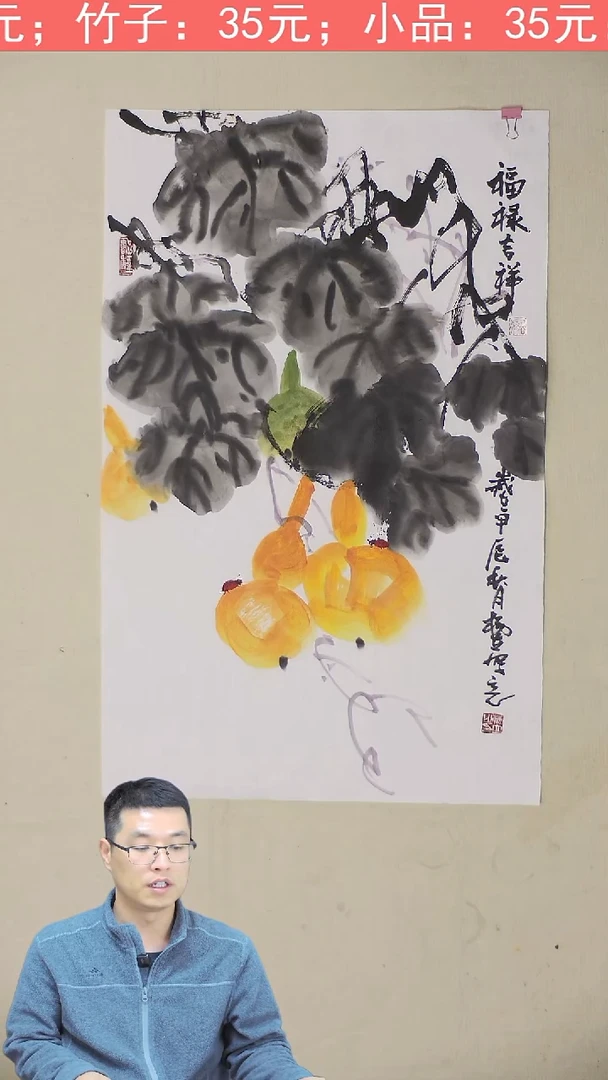 元；竹子：35元；小品：35元
福禄吉祥
岁甲辰秋月